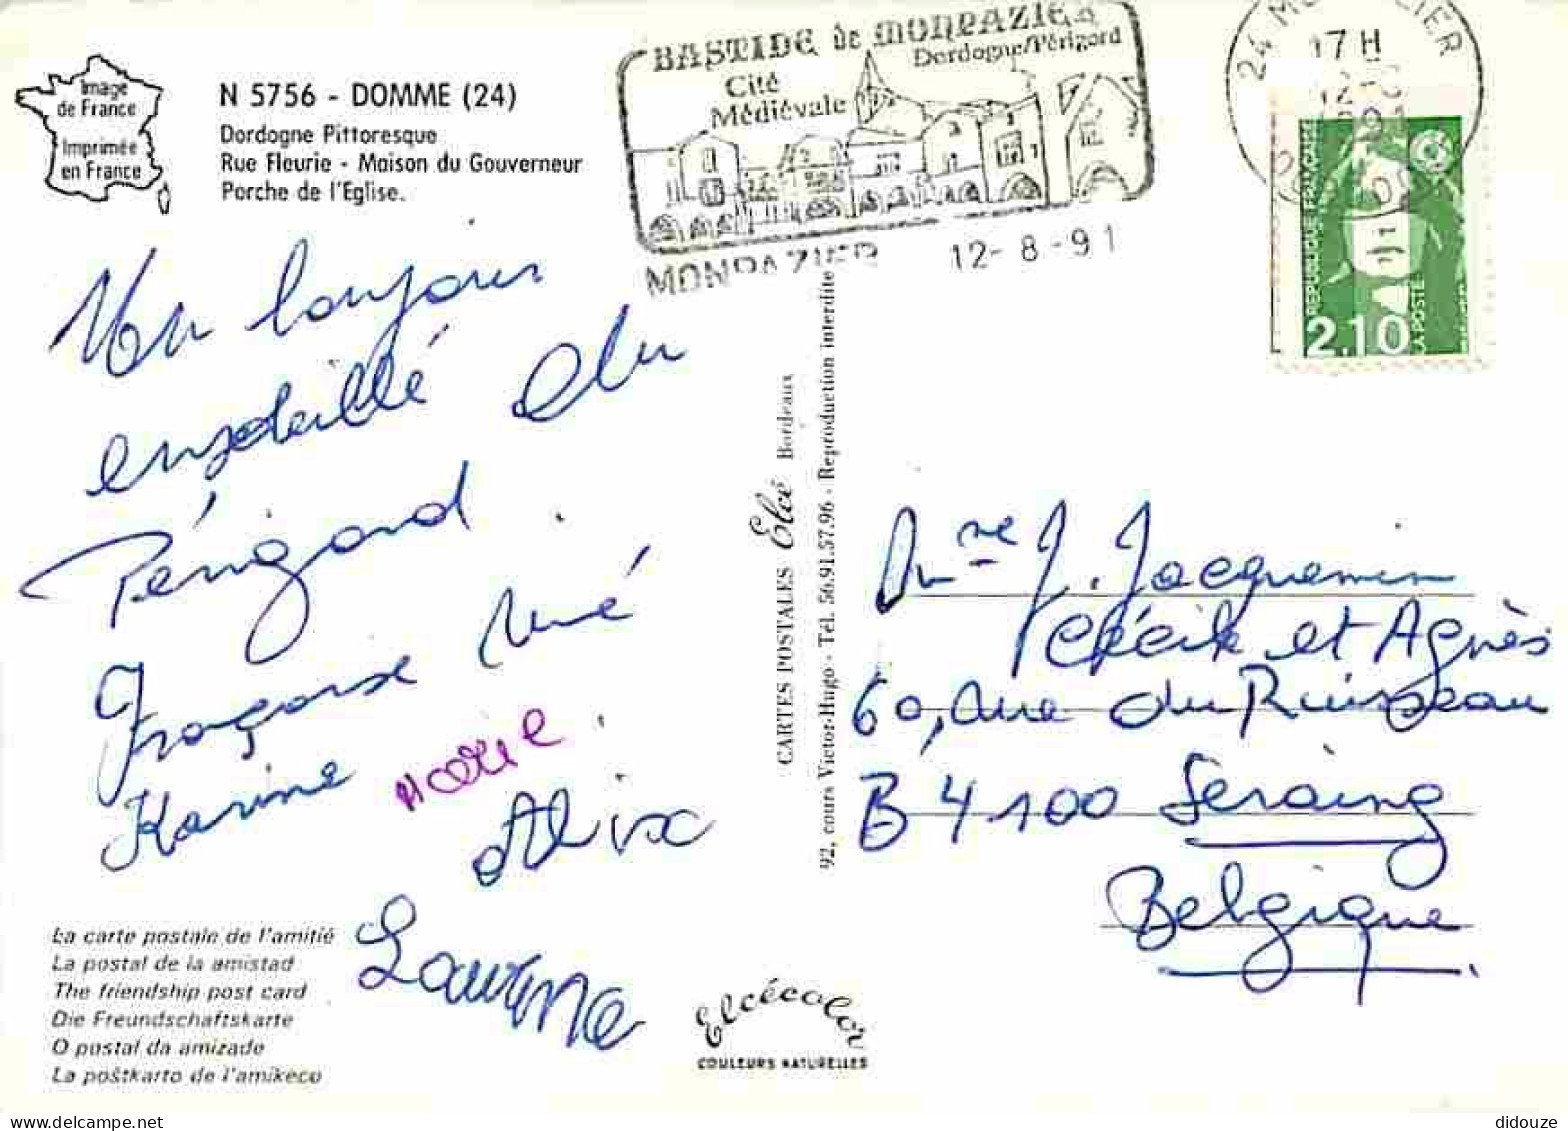 Image
de France
Imprimée
en France
N 5756 - DOMME (24)
Dordogne Pittoresque
Rue Fleurie - Maison du Gouverneur
Porche de l'Eglise.
BASTIDE de MONPAZIER
Dordogne/Périgord
Cité
Médiévale
MONPAZIER 12-8-91
17 H
REPUBLIQUE FRANÇAISE
2,10
LA POSTE
toujours
ensoleillé du
Périgord
Françoise René
Karine Marie
Alix
Laurene
La carte postale de l'amitié
La postal de la amistad
The friendship post card
Die Freundschaftskarte
O postal da amizade
La poŝtkarto de l'amikeco
Elcécolor
COULEURS NATURELLES
CARTES POSTALES Elcé Bordeaux
92, cours Victor-Hugo - Tél. 56.91.57.96 - Reproduction interdite
Mme J. Jacquemin
Cécile et Agnès
60, rue du Ruisseau
B 4100 Seraing
Belgique
didouze